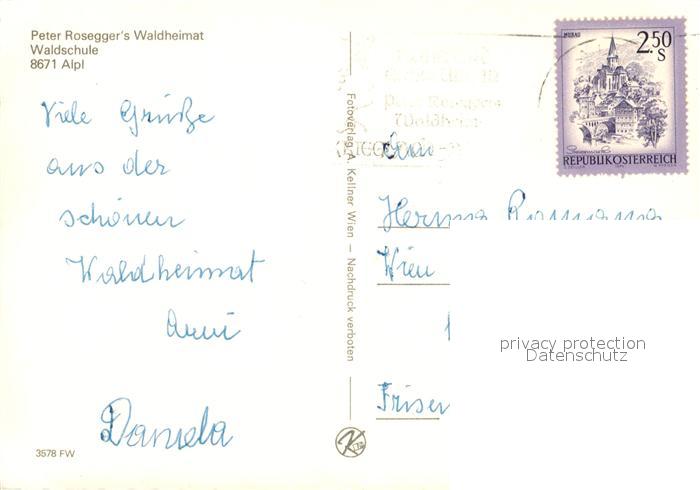 Peter Rosegger's Waldheimat
Waldschule
8671 Alpl
Viele Grüße
aus der
schönen
Waldheimat
Anni
Daniela
3578 FW
Fotoverlag A. Kellner Wien — Nachdruck verboten
MURAU
2.50
S
REPUBLIK ÖSTERREICH
Peter Roseggers
Waldheim
Herma
Wien
privacy protection
Datenschutz